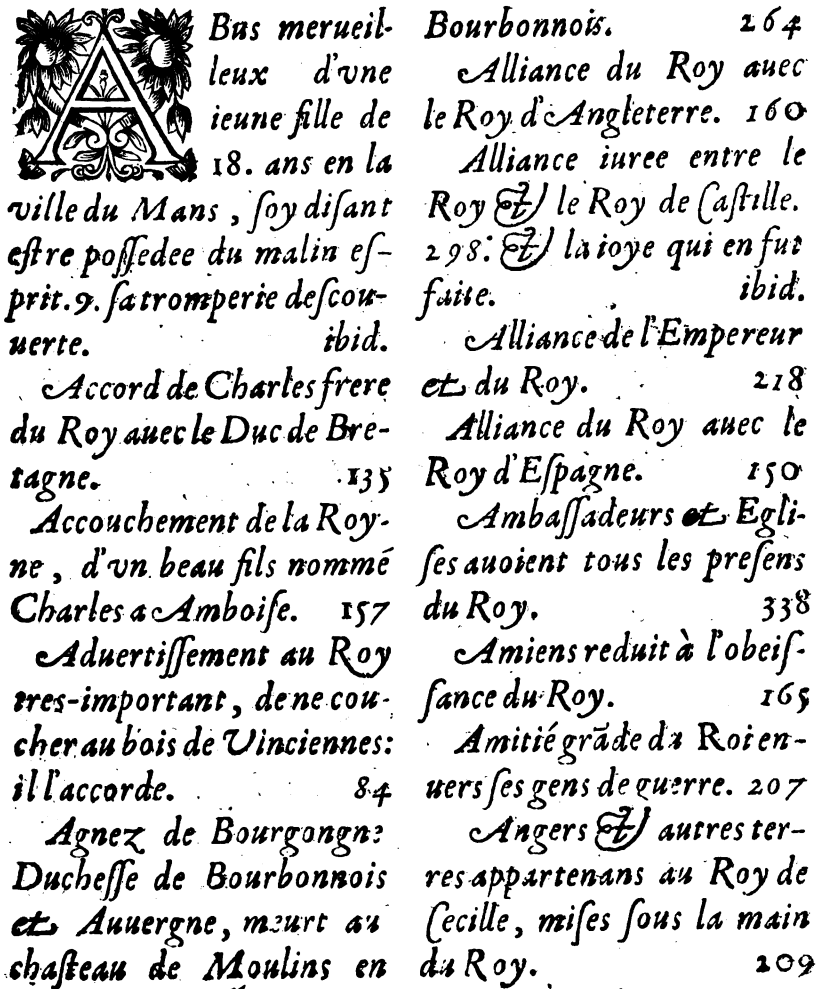 ABus merueil-
leux d'vne
ieune fille de
18. ans en la
ville du Mans, ſoy diſant
eſtre poſſedee du malin eſ-
prit. 9. ſa tromperie deſcou-
uerte. ibid.
Accord de Charles frere
du Roy auec le Duc de Bre-
tagne. 135
Accouchement de la Roy-
ne, d'vn beau fils nommé
Charles a Amboiſe. 157
Aduertiſſement au Roy
tres-important, de ne cou-
cher au bois de Vinciennes:
il l'accorde. 84
Agnez de Bourgongne
Ducheſſe de Bourbonnois
et Auuergne, meurt au
chaſteau de Moulins en
Bourbonnois. 264
Alliance du Roy auec
le Roy d'Angleterre. 160
Alliance iuree entre le
Roy & le Roy de Caſtille.
298. & la ioye qui en fut
faite. ibid.
Alliance de l'Empereur
et du Roy. 218
Alliance du Roy auec le
Roy d'Eſpagne. 150
Ambaſſadeurs et Egli-
ſes auoient tous les preſens
du Roy. 338
Amiens reduit à l'obeiſ-
ſance du Roy. 165
Amitié grāde du Roi en-
uers ſes gens de guerre. 207
Angers & autres ter-
res appartenans au Roy de
Cecille, miſes ſous la main
du Roy. 209